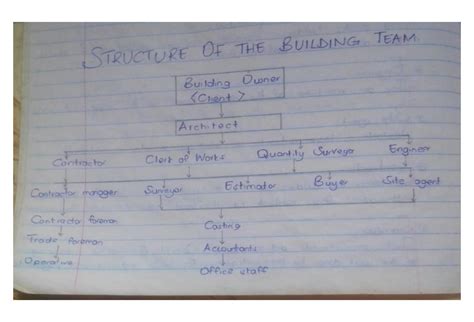 STRUCTURE OF THE BUILDING TEAM
Building Owner
<Client>
Architect
Contractor Clerk of Works Quantity Surveyor Engineer
Contractor manager Surveyor Estimator Buyer Site agent
Contractor foreman Costing
Trade foreman Accountants
Operative Office staff